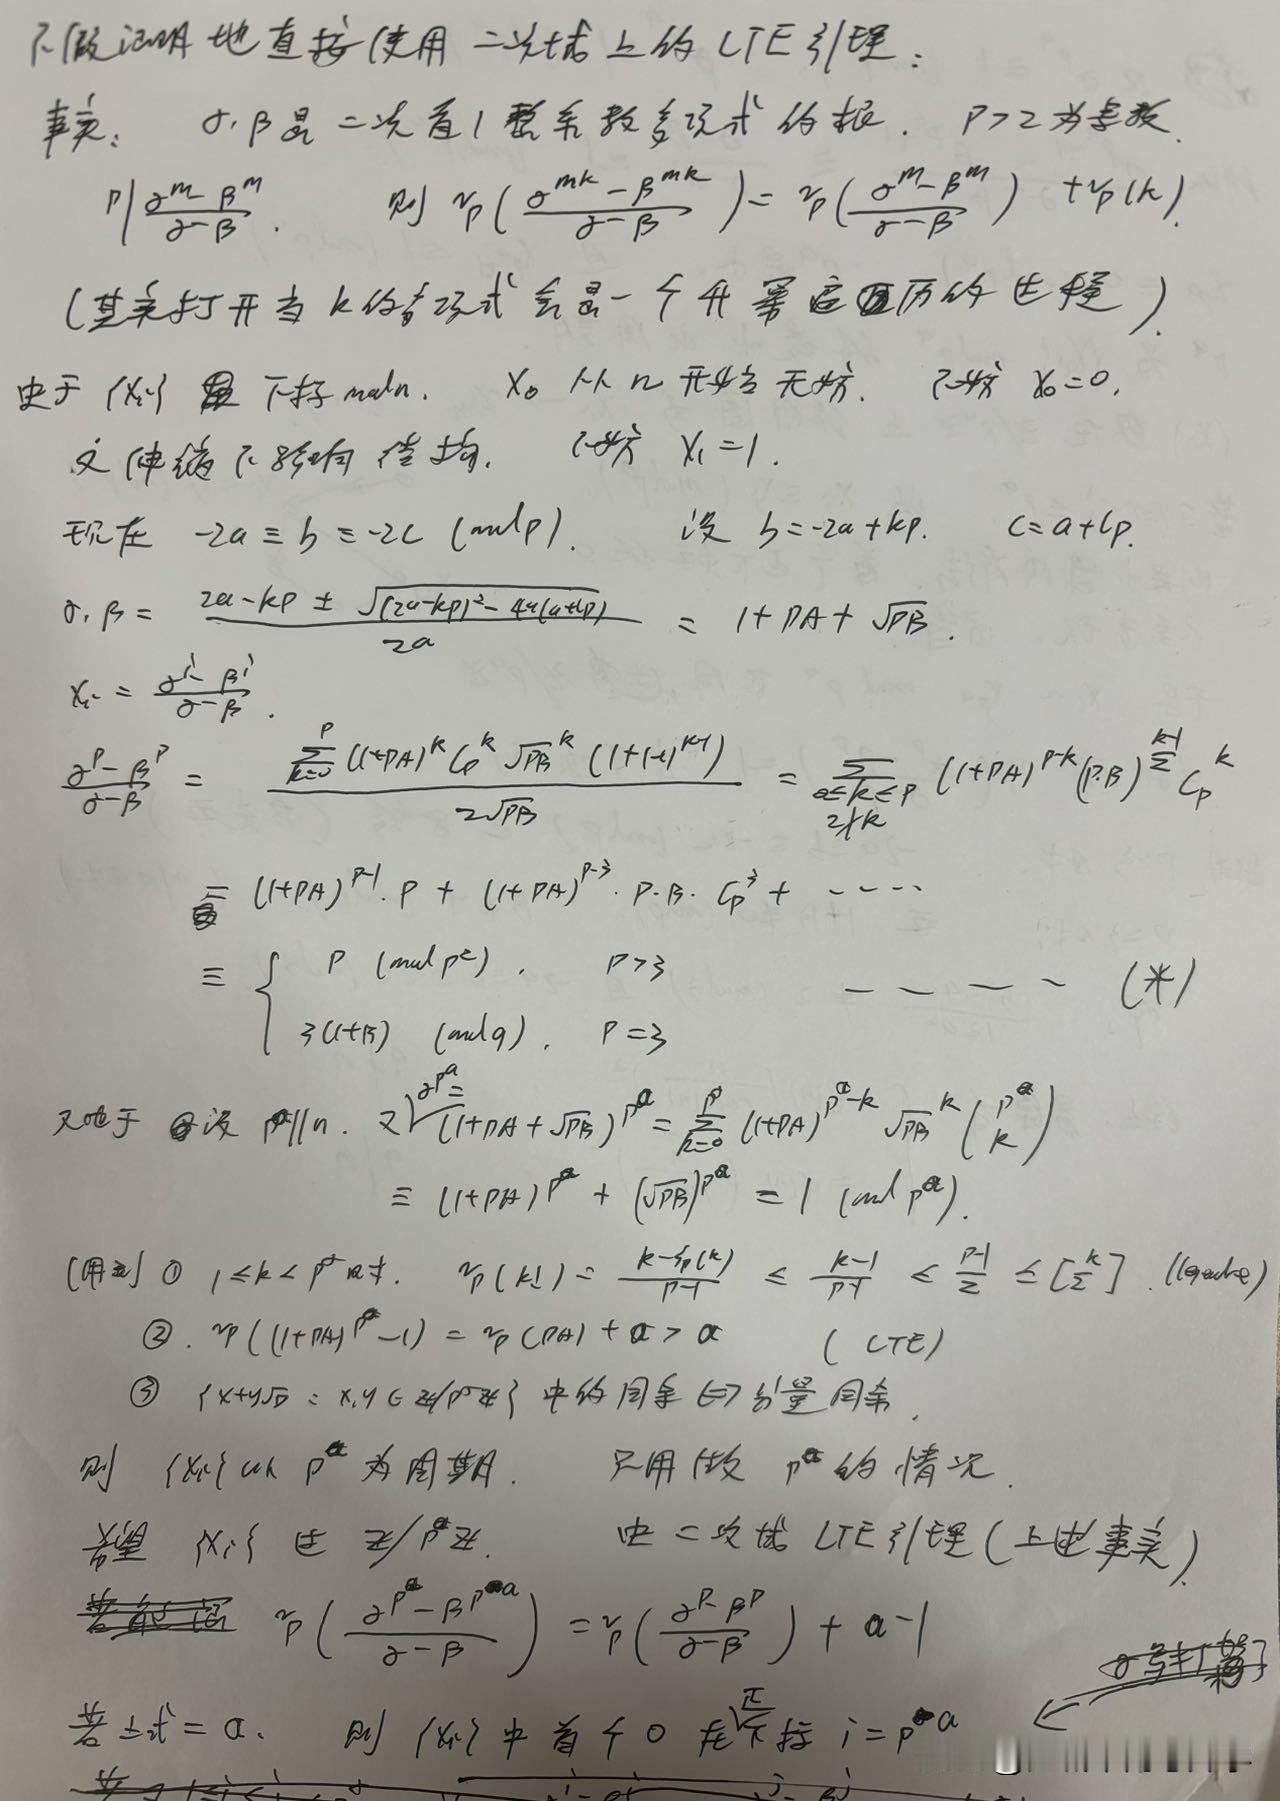 不做证明地直接使用二次域上的 LTE 引理:
事实: α,β是二次首1整系数多项式的根. p>2 为素数.
p | (α^m-β^m)/(α-β). 则 v_p((α^{mk}-β^{mk})/(α-β)) = v_p((α^m-β^m)/(α-β)) + v_p(k).
(其实打开当 k 的多项式会是一个升幂的过程).
由于 {x_i} 下标 mod n. x_0 从 n 开始无妨. 不妨 x_0=0.
又伸缩不影响结构. 不妨 x_1=1.
现在 -2a≡b≡-2c (mod p). 设 b=-2a+kp. c=a+lp.
α,β = (2a-kp ± √((2a-kp)²-4a(a+lp)))/2a = 1+pA+√pB.
x_i = (α^i-β^i)/(α-β).
(α^p-β^p)/(α-β) = (∑_{k=0}^p (1+pA)^k C_p^k √pB^k (1+(-1)^{k-1}))/(2√pB) = ∑_{0≤k≤p, 2∤k} (1+pA)^{p-k} (p·B)^{(k-1)/2} C_p^k
= (1+pA)^{p-1}·p + (1+pA)^{p-3}·p·B·C_p^3 + ····
≡ { p (mod p²), p>3
3(1+B) (mod 9), p=3 ————— (*)
又由于 设 p^a||n. 又 α^{p^a} = (1+pA+√pB)^{p^a} = ∑_{k=0}^{p^a} (1+pA)^{p^a-k} √pB^k (p^a k)
≡ (1+pA)^{p^a} + (√pB)^{p^a} ≡ 1 (mod p^a).
(用到 ① 1≤k<p^a 时. v_p(k!) = (k-S_p(k))/(p-1) ≤ (k-1)/(p-1) ≤ (k-1)/2 ≤ [k/2]. (Legendre)
②. v_p((1+pA)^{p^a}-1) = v_p(pA)+a > a (LTE)
③ {x+y√D : x,y∈Z/p^aZ} 中的同余 ⇔ 分量同余.
则 {x_i} 以 p^a 为周期. 只用做 p^a 的情况.
希望 {x_i} 过 Z/p^aZ. 由二次域 LTE 引理 (上述事实)
v_p((α^{p^a}-β^{p^a})/(α-β)) = v_p((α^p-β^p)/(α-β)) + a-1
若上式 = a. 则 {x_i} 中首个 0 在下标 i=p^a